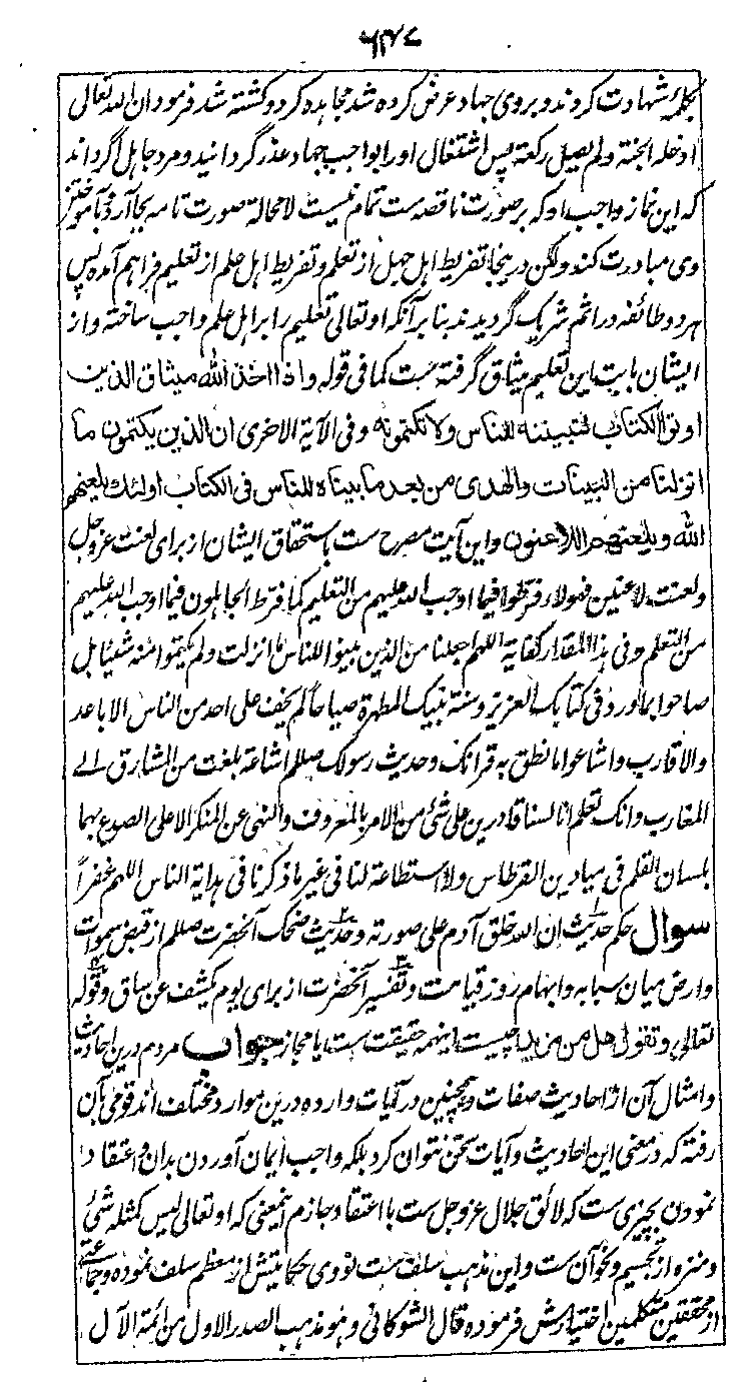 ۶۴۷
بکلمۂ شهادت کردند و بروی جهاد عرض کرده شد مجاهده کرد و کشته شد فرمود ان الله تعالی
ادخله الجنة ولم یصل رکعة پس اشتغال او را بواجب جهاد عذر گردانید و مرد جاهل اگر داند
که این نماز واجب او که بر صورت ناقصه ست تمام نیست لا محالة صورت تامه بجا آرد و بآموختن
وی مبادرت کند ولکن درینجا تفریط اهل جهل از تعلم و تفریط اهل علم از تعلیم فراهم آمده پس
هر دو طائفه در اثم شریک گردیدند بنا بر آنکه او تعالی تعلیم را بر اهل علم واجب ساخته و از
ایشان بابت این تعلیم میثاق گرفته ست کما فی قوله و اذا اخذ الله میثاق الذین
اوتوا الکتاب لتبیننه للناس ولا تکتمونه و فی الآیة الاخری ان الذین یکتمون ما
انزلنا من البینات والهدی من بعد ما بیناه للناس فی الکتاب اولئك یلعنهم
الله و یلعنهم اللاعنون و این آیت مصرح ست باستحقاق ایشان از برای لعنت عز و جل
و لعنت لاعنین فهولاء فرطوا فیما اوجب الله علیهم من التعلیم کما فرط الجاهلون فیما اوجب الله علیهم
من التعلم و فی هذا المقدار کفایة اللهم اجعلنا من الذین بینوا للناس ما انزلت ولم یکتموا منه شیئا بل
صاحوا بما ورد فی کتابک العزیز و سنة نبیک المطهرة صیاحا لم یخف علی احد من الناس الاباعد
والاقارب و اشاعوا ما نطق به قرانک و حدیث رسولک صللم اشاعة بلغت من المشارق الے
المغارب و انک تعلم انا لسنا قادرین علی شئ من الامر بالمعروف والنهی عن المنکر الا علی الصدع بهما
بلسان القلم فی میادین القرطاس ولا استطاعة لنا فی غیر ما ذکرنا فی هدایة الناس اللهم غفراً
سوال حکم حدیث ان الله خلق آدم علی صورته و حدیث ضحک آنحضرت صللم از قبض سموات
و ارض میان سبابه و ابهام روز قیامت و تفسیر آنحضرت از برای یوم یکشف عن ساق و قوله
تعالی و تقول هل من مزید چیست اینهمه حقیقت ست یا مجاز جواب مردم درین احادیث
و امثال آن از احادیث صفات و همچنین در آیات وارده درین موارد مختلف اند قومی بآن
رفته که در معنی این احادیث و آیات سخن نتوان کرد بلکه واجب ایمان آوردن بدان و اعتقاد
نمودن بچیزی ست که لائق جلال عز و جل ست با اعتقاد جازم بمعنی که او تعالی لیس کمثله شئ
و منزه از تجسیم و نحو آن ست و این مذهب سلف ست نووی حکایتش از معظم سلف نموده و جماعتی
از محققین متکلمین اختیارش فرموده قال الشوکانی و هو مذهب الصدر الاول من ائمة الآل